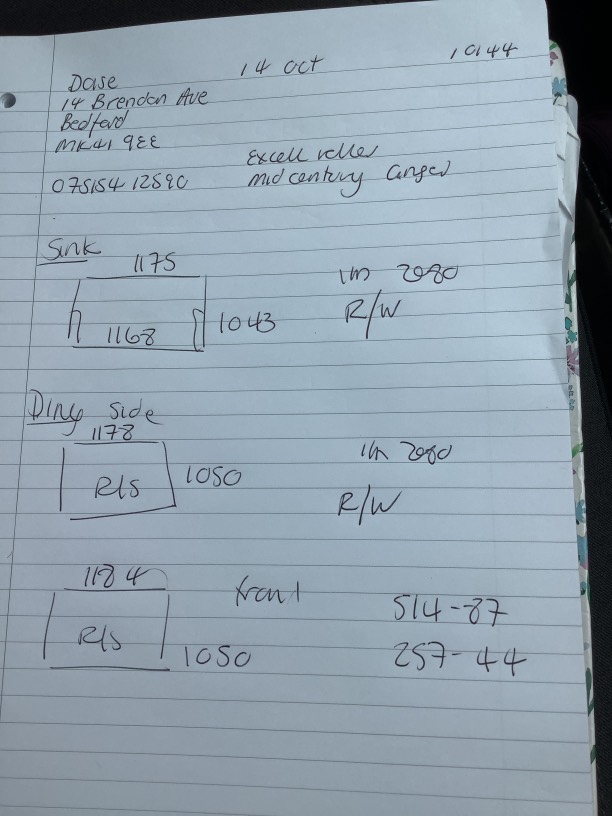 14 Oct
10144
14 Brendon Ave
Bedford
MK41 9EE
075154 12590
Excell roller
mid century
Sink
1175
1168
1043
2080
R/W
Side
1178
R/S
1050
2080
R/W
1184
front
R/S
1050
514-87
257-44